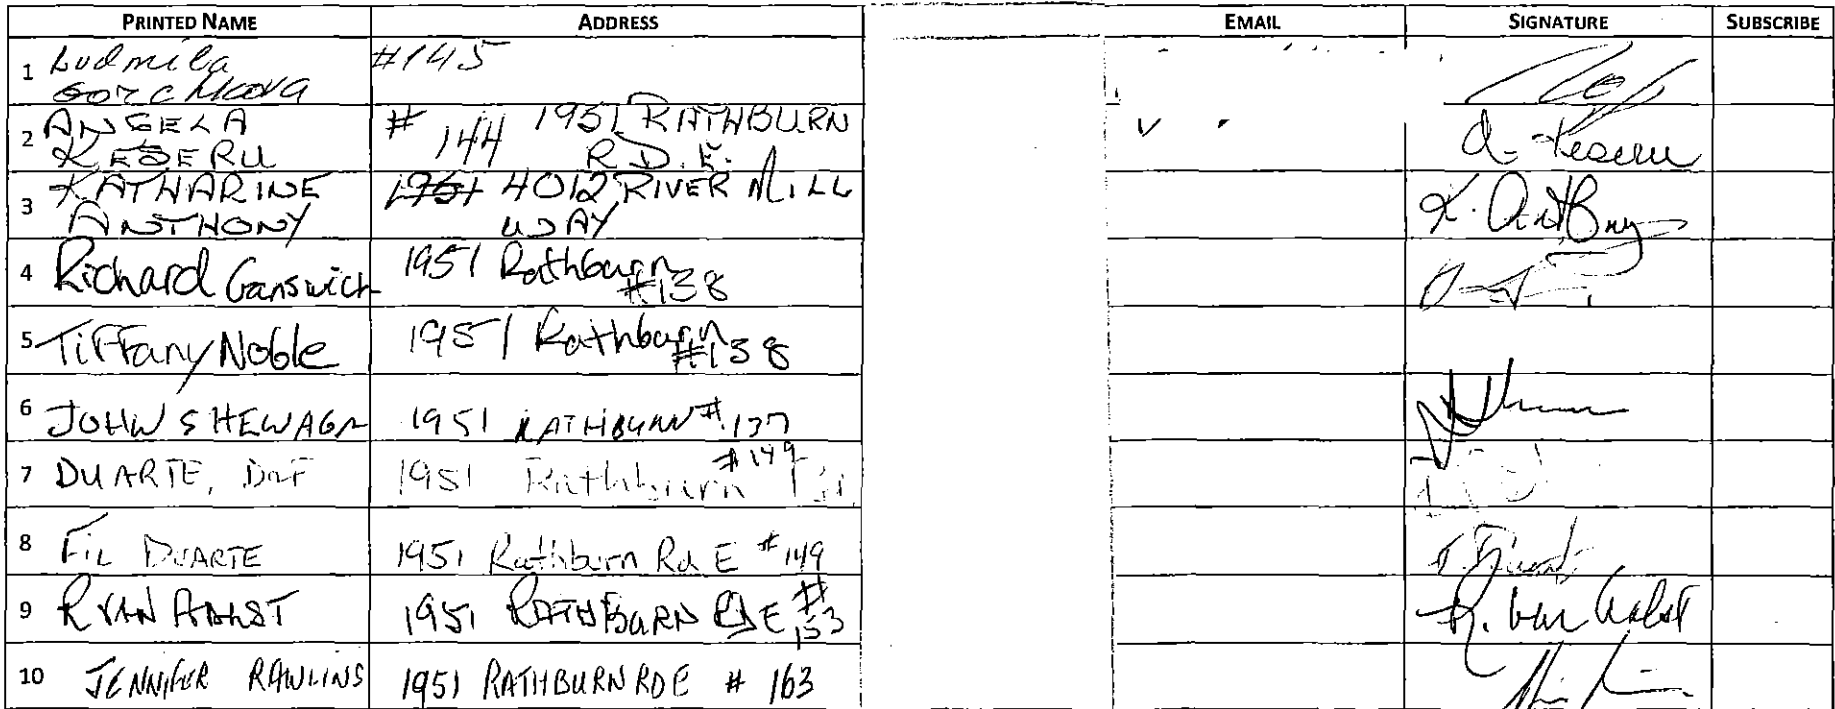 PRINTED NAME ADDRESS EMAIL SIGNATURE SUBSCRIBE
1 Ludmila #145
2 ANGELA # 144 1951 RATHBURN
KESERU RD. E. A. Keseru
3 KATHARINE 1951 4012 RIVER MILL
ANTHONY WAY K. Anthony
4 Richard Ganswich 1951 Rathburn
#138
5 Tiffany Noble 1951 Rathburn
#138
6 JOHN SHEWAGA 1951 RATHBURN #137
7 DUARTE, 1951 Rathburn #149
8 FIL DUARTE 1951 Rathburn Rd E #149
9 RYAN AALST 1951 RATHBURN RD E #153 R. van Aalst
10 JENNIFER RAWLINS 1951 RATHBURN RD E # 163